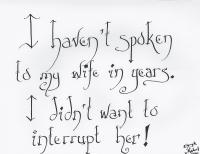 I haven't spoken
to my wife in years.
I didn't want to
interrupt her!